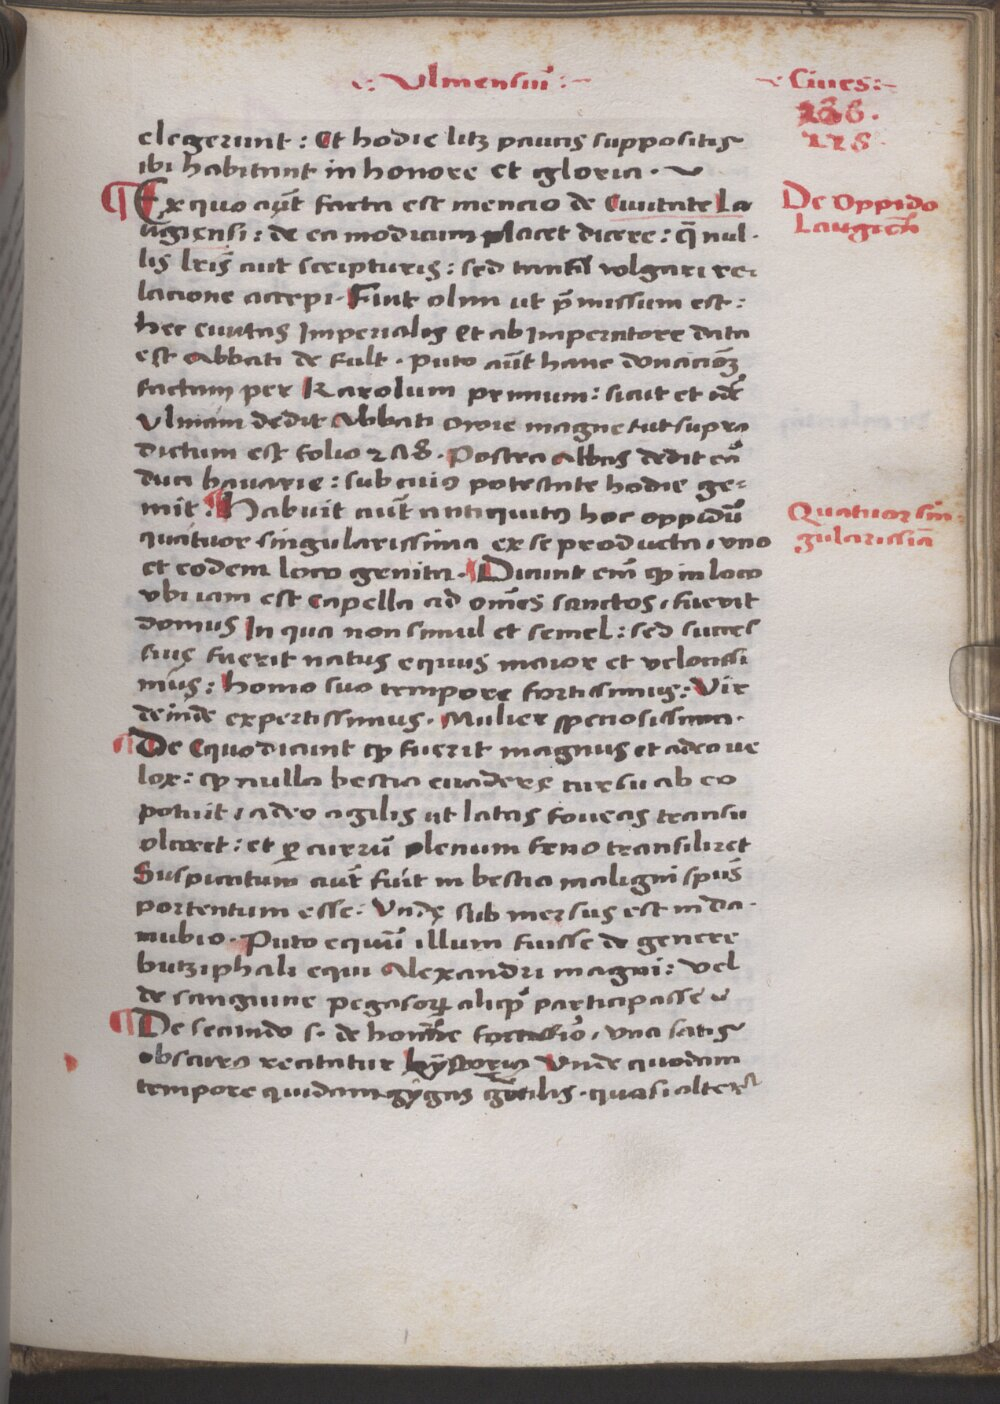 Vlmensiū
Ciues:
188.
118.
elegerunt: Et hodie litz paucis suppositis
ibi habitant in honore et gloria.
De Oppido
Laugiēsi
Ex quo aūt facta est mencio de Ciuitate La
ugiensi: de ea modicum placet dicere: q̄ nul-
lis lr̄is aut scripturis: sed tantū volgari re-
lacione accepi. Fuit olim ut p̄missum est:
hec ciuitas Imperialis Et ab Imperatore data
est Abbati de Fult. Puto aūt hanc donacioēz
factam per Karolum primum: sicut et idē
Vlmam dedit Abbati Owie magne vt supra
dictum est folio 218. Postea Abbas dedit eā
duci bauarie: sub cui9 potestate hodie ge-
mit. Habuit aūt antiquit9 hoc oppidū
Quatuor sin-
gularissia
quatuor singularissima ex se producta, vno
et eodem loco genita. Dicunt em̄ qp in loco
vbi iam est Capella ad om̄es sanctos, fuerit
domus In qua non simul et semel: sed succes
siue fuerit natus equus maior et velocissi
mus: homo suo tempore fortissimus: Vir
deinde expertissimus. Mulier speciosissima.
De Equo dicunt qp fuerit magnus et adeo ve
lox: qp nulla bestia euadere cursu ab eo
potuit, adeo agilis ut latas foueas transu
olaret: et p currū plenum feno transiliret
Suspicatum aūt fuit in bestia maligni spūs
portentum esse. Vnde sub mersus est in da-
nubio. Puto equū illum fuisse de genere
butziphali equi Alexandri magni: vel
de sanguine pegasorꝫ aliqp participasse
De secundo s. de hoīne fortissīo, vna satis
obscura recitatur hystoria Vnde quodam
tempore quidam gygas gētilis. quasi alter